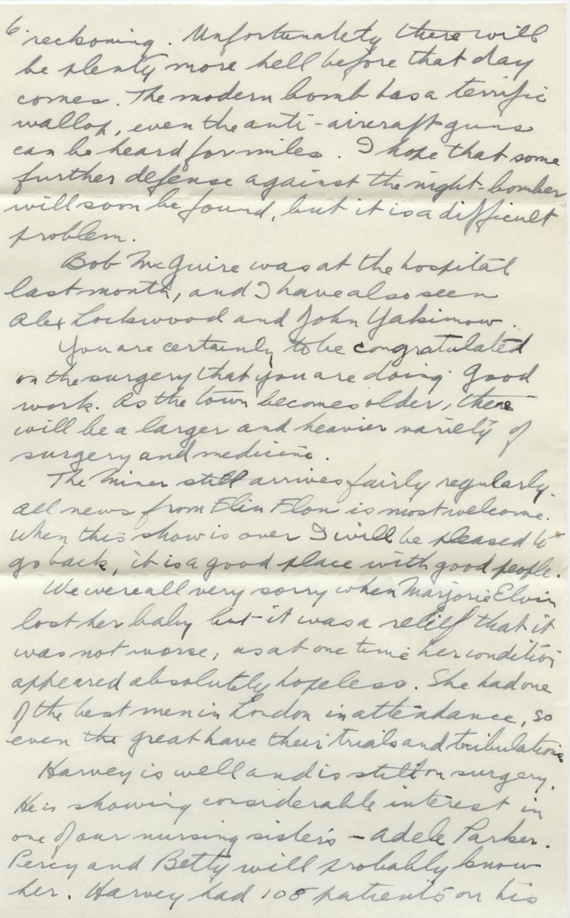 6.
reckoning. Unfortunately there will
be plenty more hell before that day
comes. The modern bomb has a terrific
wallop, even the anti-aircraft guns
can be heard for miles. I hope that some
further defense against the night-bomber
will soon be found, but it is a difficult
problem.
Bob McGuire was at the hospital
last month, and I have also seen
Alex Lockwood and John Yakimow.
You are certainly to be congratulated
on the surgery that you are doing. Good
work. As the town becomes older, there
will be a larger and heavier variety of
surgery and medicine.
The Miner still arrives fairly regularly.
all news from Flin Flon is most welcome.
When this show is over I will be pleased to
go back, it is a good place with good people.
We were all very sorry when Marjorie Elvin
lost her baby but it was a relief that it
was not worse, as at one time her condition
appeared absolutely hopeless. She had one
of the best men in London in attendance, so
even the great have their trials and tribulations
Harvey is well and is still on surgery.
He is showing considerable interest in
one of our nursing sisters - Adele Parker.
Percy and Betty will probably know
her. Harvey had 108 patients on his